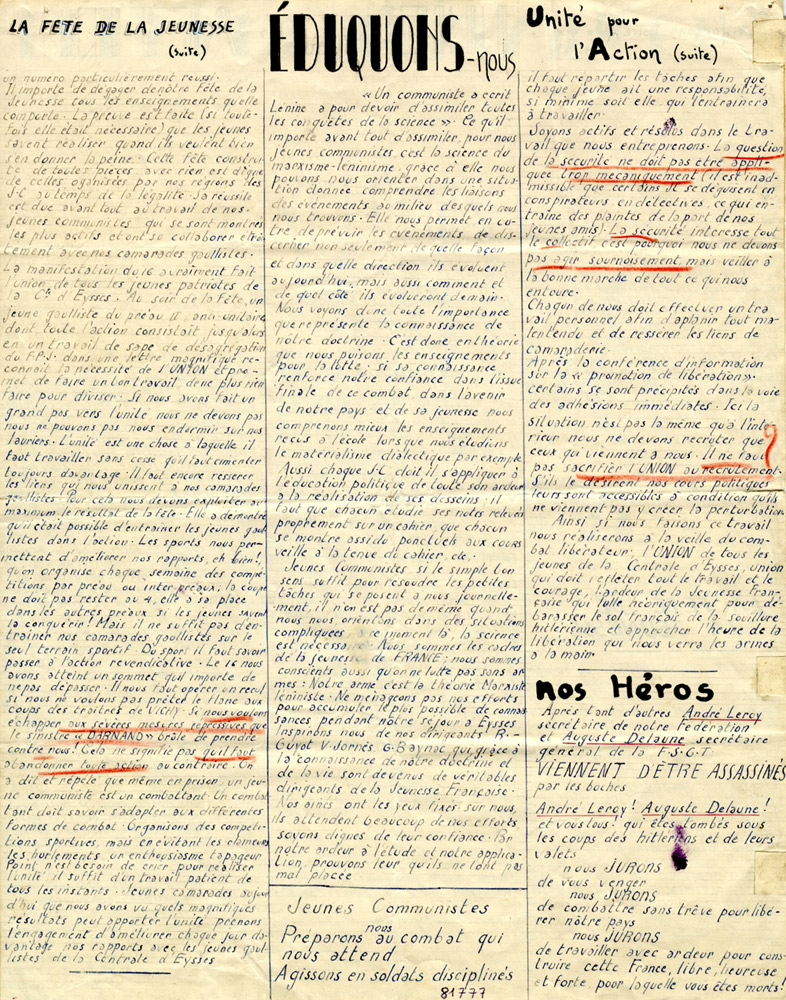 LA FETE DE LA JEUNESSE
(suite)
un numéro particulièrement réussi.
Il importe de dégager de nôtre Fête de la
Jeunesse tous les enseignements qu'elle
comporte. La preuve est faite (si toute-
fois elle était nécessaire) que les jeunes
savent réaliser quand ils veulent bien
s'en donner la peine. Cette Fête construi-
te de toutes pièces, avec rien est digne
de celles oganisées par nos régions des
JC au temps de la légalité. Sa réussite
est due avant tout au travail de nos
jeunes communistes qui se sont montrés
les plus actifs et ont su collaborer étroi-
cement avec nos camarades gaullistes.
La manifestation du 16 a vraiment fait
l'union de tous les jeunes patriotes de
la Cle d'Eysses. Au soir de la Fête, un
jeune gaulliste du préau II, anti-unitaire
dont toute l'action consistait jusqu'alors
en un travail de sape de désagrégation
du F.P.J. dans une lettre magnifique re-
connait la nécessité de l'UNION et pro-
met de faire un bon travail de ne plus rien
faire pour diviser. Si nous avons fait un
grand pas vers l'unité nous ne devons pas
nous ne pouvons pas nous endormir sur nos
lauriers. L'unité est une chose à laquelle il
faut travailler sans cesse qu'il faut cimenter
toujours davantage. Il faut encore resserer
les liens qui nous unissent à nos camarades
gaullistes. Pour cela nous devons exploiter au
maximum le résultat de la fête. Elle a démontré
qu'il était possible d'entrainer les jeunes gaul
listes dans l'action. Les sports nous per-
mettent d'améliorer nos rapports, eh bien!,
qu'on organise chaque semaine des compé-
titions par préau ou inter-préaux; la coupe
ne doit pas rester au 4, elle a sa place
dans les autres préaux si les jeunes savent
la conquérir! Mais il ne suffit pas d'en-
trainer nos camarades gaullistes sur le
seul terrain sportif. Du sport il faut savoir
passer à l'action revendicative. Le 16 nous
avons atteint un sommet qu'il importe de
ne pas dépasser. Il nous faut opérer un recul
si nous ne voulons pas prêter le flanc aux
coups des traitres de VICHY; si nous voulons
échapper aux sévères mesures répressives que
le sinistre "DARNAND" brûle de prendre
contre nous! Cela ne signifie pas qu'il faut
abandonner toute action au contraire. On
a dit et répété que même en prison, un jeu-
ne communiste est un combattant. Un combat
tant doit savoir s'adapter aux différentes
formes de combat. Organisons des compéti-
tions sportives, mais en évitant les clameurs
les hurlements, un enthousiasme tapageur
Point n'est besoin de crier pour réaliser
l'unité il suffit d'un travail patient de
tous les instants. Jeunes camarades aujour
d'hui que nous avons vu quels magnifiques
résultats peut apporter l'unité prenons
l'engagement d'améliorer chaque jour da-
vantage nos rapports avec les jeunes gaul-
listes de la Centrale d'Eysses
ÉDUQUONS-nous
"Un communiste a écrit
Lenine a pour devoir d'assimiler toutes
les conquêtes de la science". Ce qu'il
importe avant tout d'assimiler, pour nous
jeunes communistes, c'est la science du
marxisme-leninisme, grâce à elle nous
pouvons nous orienter dans une situa-
tion donnée comprendre les liaisons
des événements au milieu desquels nous
nous trouvons. Elle nous permet en ou-
tre de prévoir les événements de dis-
cerner non seulement de quelle façon
et dans quelle direction ils évoluent
aujourd'hui, mais aussi comment et
de quel côté ils évolueront demain.
Nous voyons donc toute l'importance
que représente la connaissance de
nôtre doctrine. C'est donc en théorie
que nous puisons les enseignements
pour la lutte; si sa connaissance
renforce notre confiance dans l'issue
finale de ce combat dans l'avenir
de notre pays et de sa jeunesse nous
comprenons mieux les enseignements
reçus à l'école lorsque nous étudions
le matérialisme dialectique par exemple
Aussi chaque J-C doit il s'appliquer à
l'éducation politique de toute son ardeur
à la réalisation de ses desseins; il
faut que chacun étudie ses notes relevées
proprement sur un cahier, que chacun
se montre assidu ponctuel aux cours
veille à la tenue du cahier, etc.
Jeunes Communistes si le simple bon
sens suffit pour résoudre les petites
tâches qui se posent à nous journelle-
ment, il n'en est pas de même quand
nous nous orientons dans des situations
compliquées. A ce moment là, la science
est nécessaire. Nous sommes les cadres
de la jeunesse de FRANCE; nous sommes
conscients aussi qu'on ne lutte pas sans ar-
mes! Notre arme c'est la théorie Marxiste
Leniniste. Ne ménageons pas nos efforts
pour accumuler le plus possible de connais
sances pendant notre séjour à Eysses
Inspirons nous de nos dirigeants! R.-
Guyot V. Jornés, G. Baynac qui grâce à
la connaissance de notre doctrine et
de la vie sont devenus de véritables
dirigeants de la Jeunesse Française.
Nos ainés ont les yeux fixés sur nous,
ils attendent beaucoup de nos efforts
soyons dignes de leur confiance. Par
notre ardeur à l'étude et notre applica-
tion, prouvons leur qu'ils ne l'ont pas
mal placée
Jeunes Communistes
Préparons nous au combat qui
nous attend
Agissons en soldats disciplinés
81777
Unité pour
l'Action (suite)
il faut répartir les tâches afin que
chaque jeune ait une responsabilité,
si minime soit elle, qui l'entrainera
à travailler.
Soyons actifs et résolus dans le tra-
vail que nous entreprenons. La question
de la sécurité ne doit pas être appli-
quée trop mécaniquement (il est inad-
missible que certains JC se déguisent en
conspirateurs, en détectives, ce qui en-
traine des plaintes de la part de nos
jeunes amis). La sécurité intéresse tout
le collectif, c'est pourquoi nous ne devons
pas agir sournoisement, mais veiller à
la bonne marche de tout ce qui nous
entoure.
Chacun de nous doit effectuer un tra
vail personnel afin d'aplanir tout ma-
lentendu et de resserer les liens de
camaraderie.
Après la conférence d'information
sur la "promotion de libération"
certains se sont précipités dans la voie
des adhésions immédiates. Ici la
situation n'est pas la même qu'à l'inté-
rieur nous ne devons recruter que
ceux qui viennent à nous. Il ne faut
pas sacrifier l'UNION au recrutement.
S'ils le désirent, nos cours politiques
leurs sont accessibles à condition qu'ils
ne viennent pas y créer la perturbation
Ainsi si nous faisons ce travail
nous réaliserons à la veille du com-
bat libérateur, l'UNION de tous les
jeunes de la Centrale d'Eysses, union
qui doit refléter tout le travail et le
courage, l'ardeur de la Jeunesse Fran-
çaise qui lutte héoriquement pour dé-
barasser le sol français de la souillure
hitlérienne et approcher l'heure de la
libération qui nous verra les armes
à la main
nos Héros
Après tant d'autres André Leroy
secrétaire de notre Fédération
et Auguste Delaune secrétaire
général de la F.S.G.T
VIENNENT D'ÊTRE ASSASSINÉS
par les boches
André Leroy! Auguste Delaune!
et vous tous! qui êtes tombés sous
les coups des hitlériens et de leurs
valets
nous JURONS
de vous venger
nous JURONS
de combattre sans trêve pour libé-
rer nôtre pays
nous JURONS
de travailler avec ardeur pour cons-
truire cette France, libre, heureuse
et forte, pour laquelle vous êtes morts!